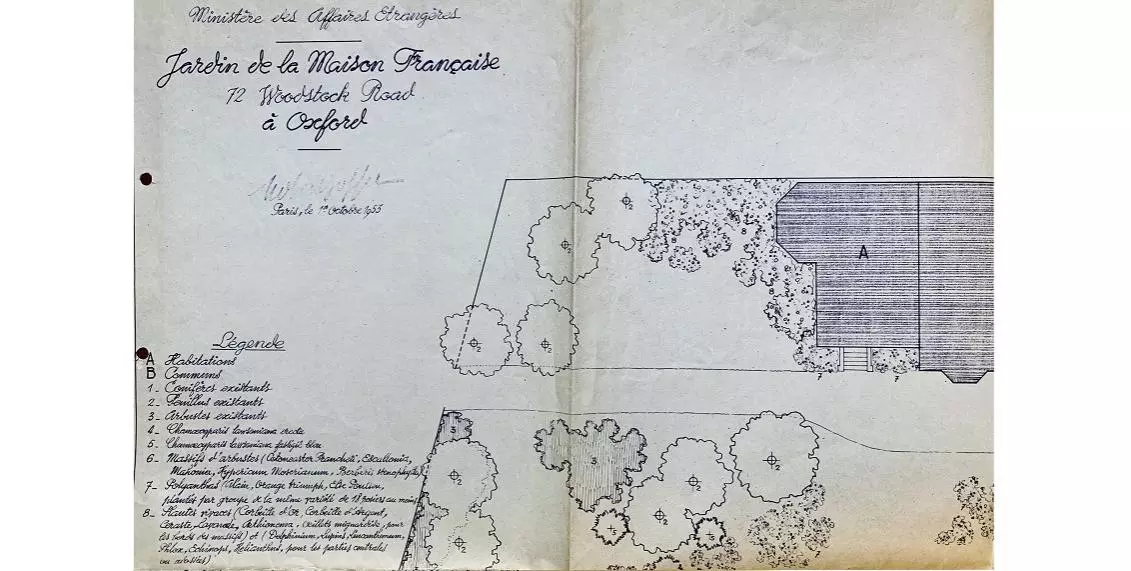 Ministère des Affaires Etrangères
Jardin de la Maison Française
72 Woodstock Road
à Oxford
Paris, le 1er Octobre 1953
Légende
A Habitations
B Communs
1_ Conifères existants
2_ Feuillus existants
3_ Arbustes existants
4_ Chamaecyparis lawsoniana erecta
5_ Chamaecyparis lawsoniana bleu
6_ Massifs d'arbustes (Cotoneaster Francheti, Escallonia,
Mahonia, Hypericum Moserianum, Berberis stenophylla)
7_ Polyanthas (Alain, Orange triumph, Else Poulsen,
plantés par groupe de la même variété de 18 rosiers au moins
8_ Plantes vivaces (Corbeille d'Or, Corbeille d'Argent,
Ceraste, Lavande, Aethionema, Oeillets mignardise, pour
les bords des massifs) et (Delphinium, Lupins, Leucanthemum,
Phlox, Echinops, Helianthus, pour les parties centrales
ou adossées)
2
2
8
A
2
2
7
7
3
2
3
2
2
2
5
5
2